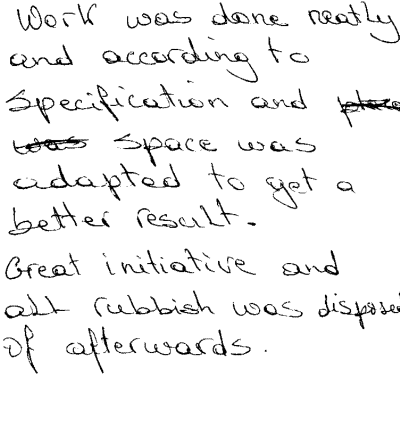 Work was done neatly
and according to
specification and
space was
adapted to get a
better result.
Great initiative and
all rubbish was disposed
of afterwards.